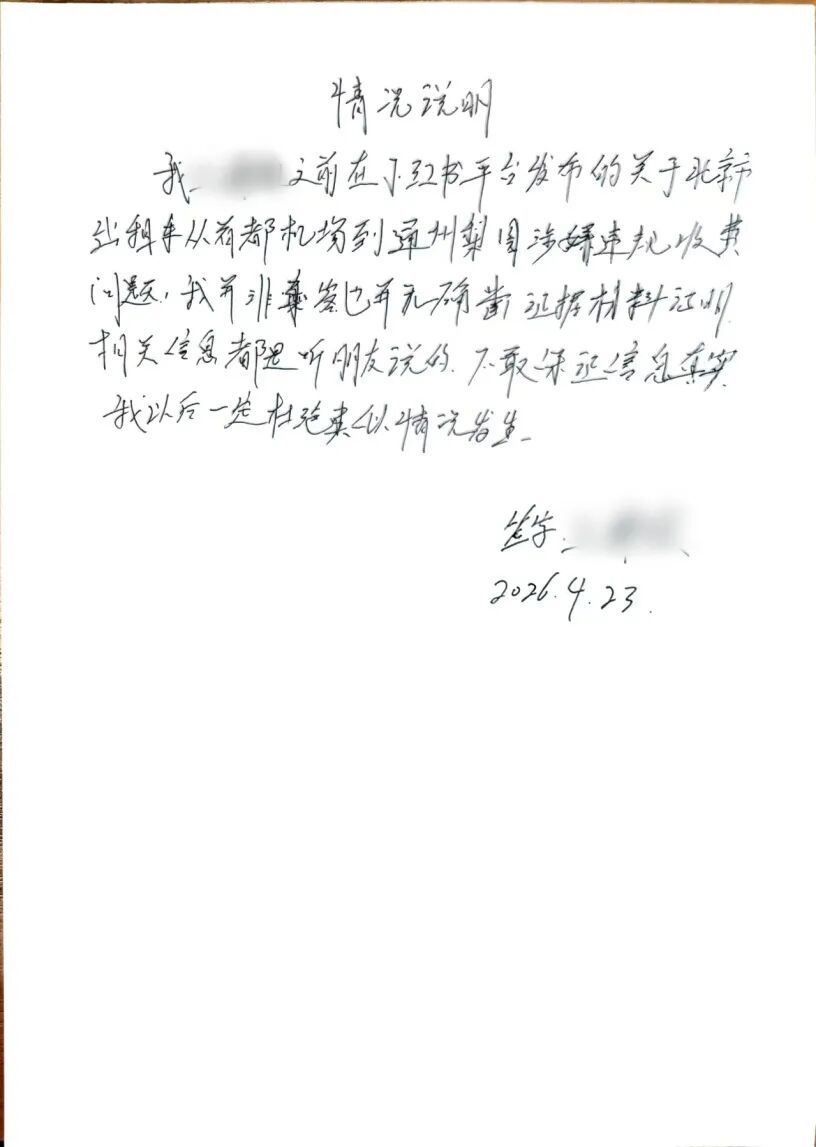 情况说明
我 之前在小红书平台发布的关于北京市
出租车从首都机场到通州梨园涉嫌违规收费
问题，我并非乘客也并无确凿证据材料证明
相关信息都是听朋友说的.不敢保证信息真实
我以后一定杜绝类似情况发生.
签字.
2026.4.23.